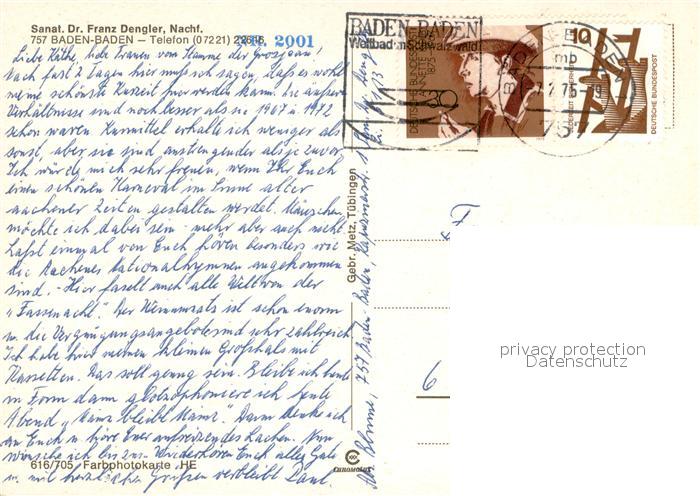 Sanat. Dr. Franz Dengler, Nachf.
757 BADEN-BADEN – Telefon (07221)
2001
Liebe Käthe, liebe Frauen vom Stamme der
Nach fast 2 Tagen hier muß ich sagen, daß es wohl
meine schönste Kurzeit hier werden kann. Die äußeren
Verhältnisse sind noch besser als sie 1967 u 1972
schon waren. Kurmittel erhalte ich weniger als
sonst, aber sie sind anstrengender als je zuvor.
Ich würde mich sehr freuen, wenn Ihr Euch
einen schönen Karneval im Sinne alter
Aachener Zeiten gestalten werdet. Mäuschen
möchte ich dabei sein - mehr aber auch nicht.
Laßt einmal von Euch hören besonders wie
die Aachener Nationalhymnen angekommen
sind. - Hier faselt auch alle Welt von der
"Fassenacht". Der Weinumsatz ist schon enorm
u. die Vergnügungsangebote sind sehr zahlreich.
Ich habe hier meinen kleinen mit
Kassetten. Das soll genug sein. Bleibe ich heute
in Form dann ich heute
Abend "Mainz bleibt Mainz". Dann denke ich
an Euch u. höre Euer aufreizendes Lachen. Nun
wünsche ich bis zum Wiederhören Euch alles Gute
u. mit herzlichen Grüßen verbleibt Paul
616/705 Farbphotokarte HE
Gebr. Metz, Tübingen
757 Baden-Baden,
BADEN-BADEN
Weltbad im Schwarzwald
DEUTSCHE BUNDESPOST
1875
30
10
DEUTSCHE BUNDESPOST
BADEN-BADEN
mb
75-19
757
6
CHROMOLUX
privacy protection
Datenschutz